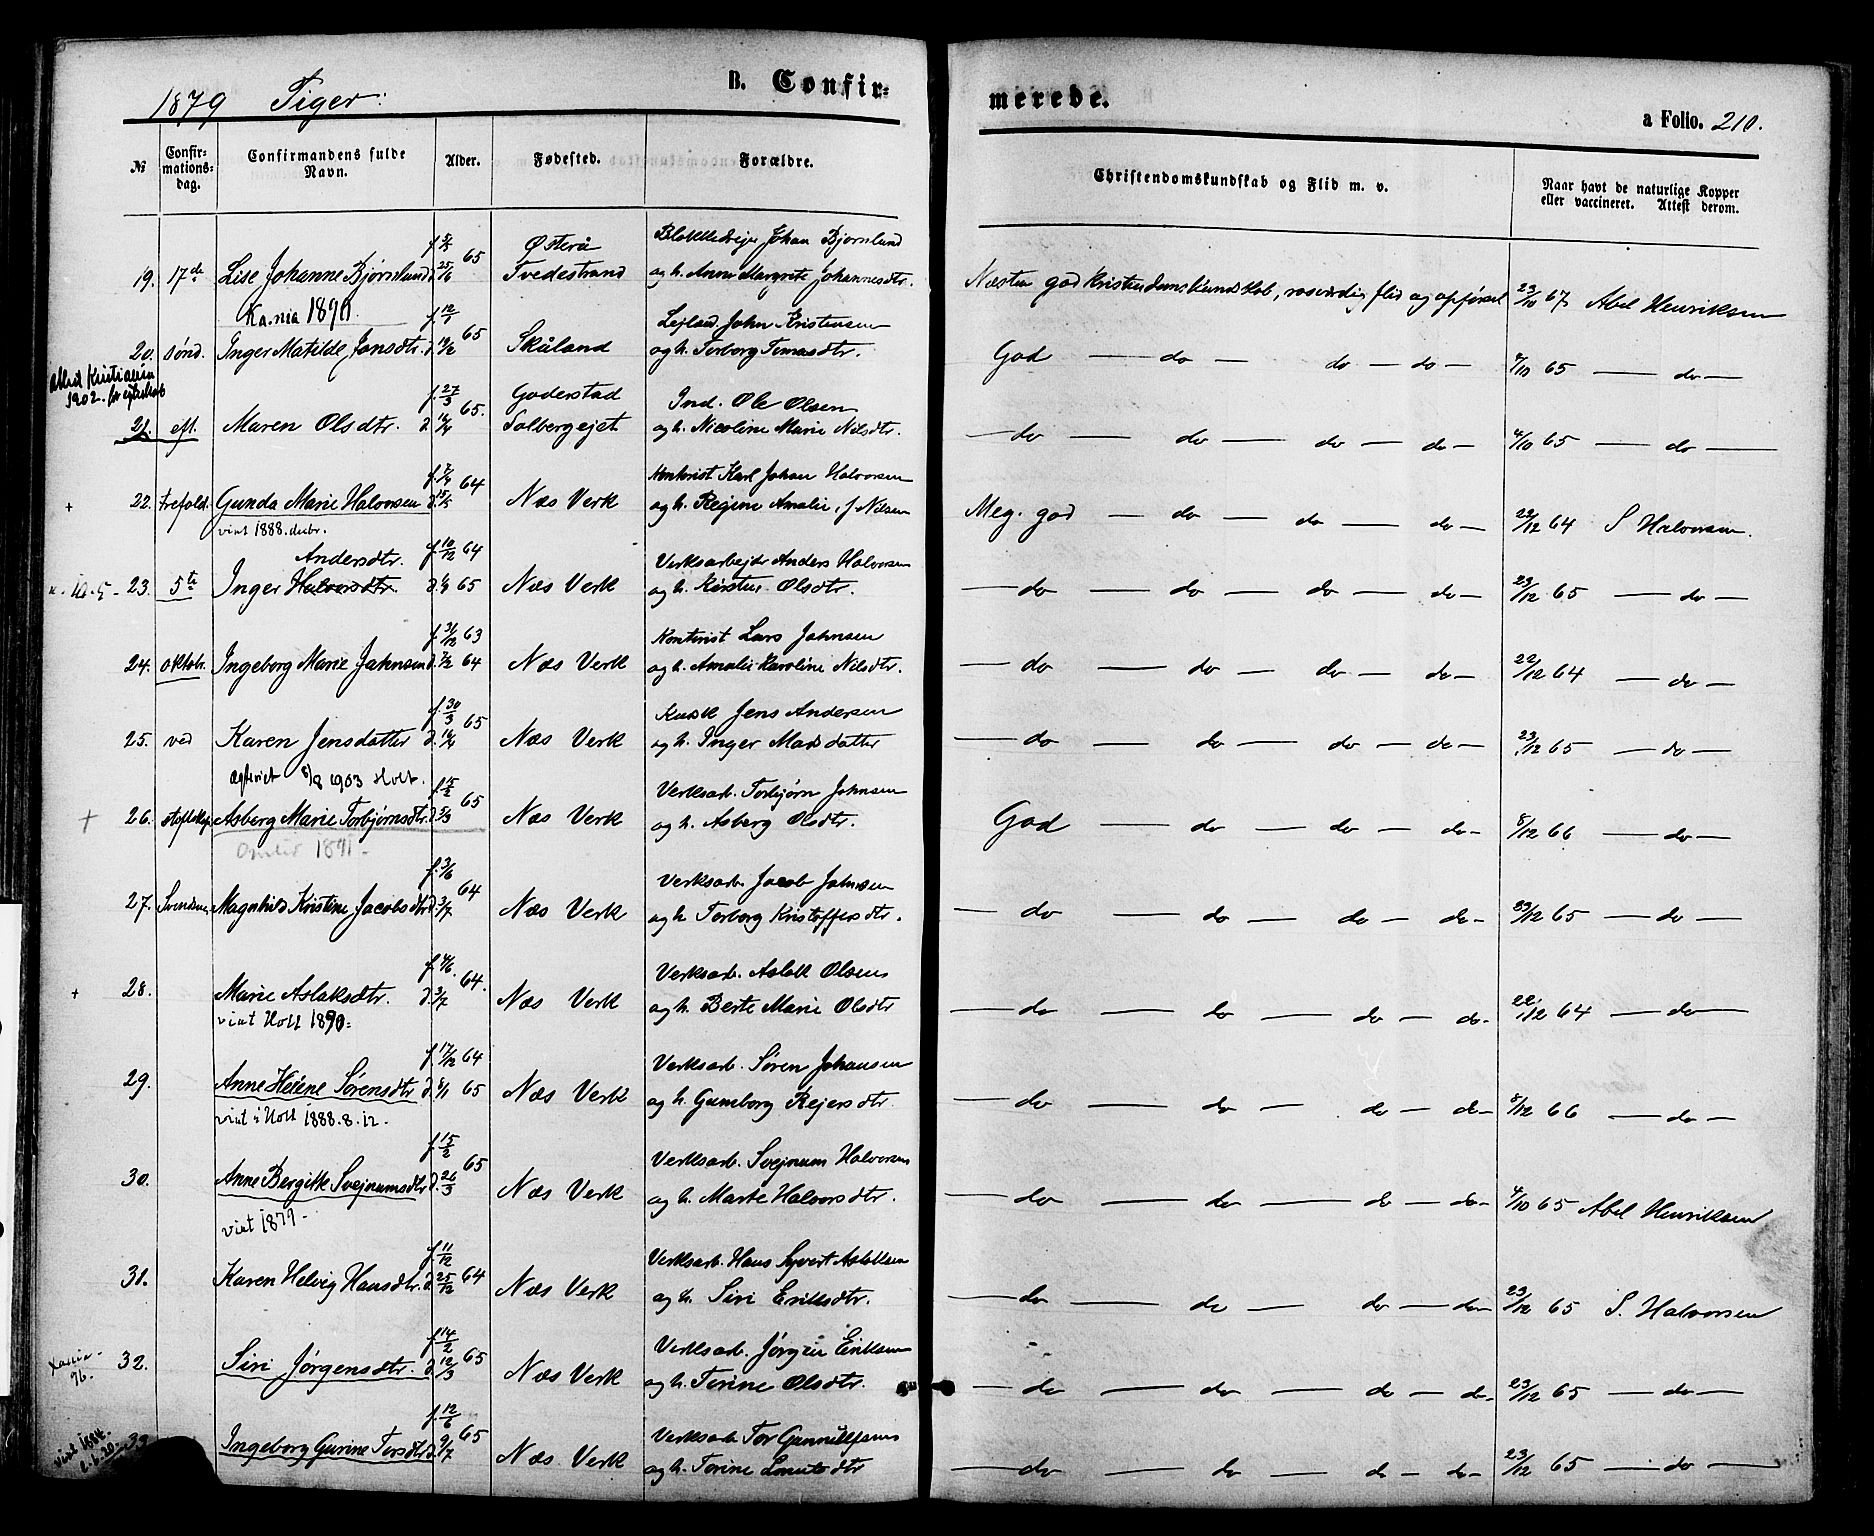 1879 Piger:
B. Confir-
merede.
a Folio. 210.
№
Confir-
mations-
dag.
Confirmandens fulde
Navn.
Alder.
Fødested.
Forældre.
Christendomskundskab og Flid m. v.
Naar havt de naturlige Kopper
eller vaccineret. Attest derom.
f. 65 Østerå Johan Bjørnlund
19. 17de Lise Johanne Bjørnslund d. 25/6 Tvedestrand og h. Anne Margrete Johannesdtr. Næsten god kristendomskundskab, rosværdig flid og opførsel 23/10 67 Abel Henriksen
Ka.nia 1890
f. 12/1 65 Lejland. John Kristensen
20. sønd. Inger Matilde Jonsdtr. d. 19/2 Skåland og h. Torborg Tomasdtr. God — do — do — do — 4/10 65 — do —
attest Kristiania
1902. for ægteskab
f. 27/3 65. Goderstad Ind. Ole Olsen
21. eft. Maren Olsdtr. d. 16/4 Solbergejet og h. Nicoline Marie Nilsdtr. — do — do — do — do — 4/10 65 — do —
f. 7/4 64 Kontorist Karl Johan Halvorsen
+ 22. trefold. Gunda Marie Halvorsen d. 15/5 Næs Verk og h. Regine Amalie, f. Nilsen Meg. god — do — do — do — 22/12 64 S Halvorsen.
viet 1888. decbr.
Andersdtr. f. 10/12 64 Verksarbejder Anders Halvorsen
23. 5te Inger Halvorsdtr. d. 1/4 65 Næs Verk og h. Kirsten Olsdtr. — do — do — do — do — 23/12 65 — do —
f. 31/12 63 Kontorist Lars Johnsen
24. oktobr. Ingeborg Marie Johnsen d. 7/2 64 Næs Verk og h. Amalie Karoline Nilsdtr. — do — do — do — do — 22/12 64 — do —
f. 30/3 65 Kusk Jens Andersen
25. ved Karen Jensdatter d. 16/4 Næs Verk og h. Inger Madsdatter — do — do — do — do — 23/12 65 — do —
ægteviet 8/8 1903 Holt.
f. 15/2 65 Verksarb. Torbjørn Johnsen
+ 26. Asberg Marie Torbjørnsdtr. d. 5/3 Næs Verk og h. Asberg Olsdtr. God — do — do — do — 8/12 66 — do —
1891 —
f. 3/6 64 Verksarb. Jacob Johnsen
27. Svendsen Magnhild Kristine Jacobsdtr. d. 3/7 Næs Verk og h Torborg Kristoffersdtr. — do — do — do — do — 23/12 65 — do —
f. 4/6. 64. Verksarb. Aslak Olsen
+ 28. Marie Aslaksdtr. d. 3/7 Næs Verk og h. Berte Marie Olsdtr — do — do — do — do — 22/12 64 — do —
viet Holt 1890.
f. 17/12 64 Verksarb. Søren Johansen
29. Anne Helene Sørensdtr d. 8/1 65 Næs Verk og h Gumborg Rejersdtr. — do — do — do — do — 8/12 66 — do —
viet i Holt 1888. 8. 12.
f. 15/2 65 Verksarb. Svejnum Halvorsen
30. Anne Bergitte Svejnumsdtr. d. 26/3 Næs Verk og h. Marte Halvorsdtr. — do — do — do — do — 4/10 65 Abel Henriksen
viet 1879 —
f. 11/12 64 Verksarb. Hans Syvert Aslaksen
31. Karen Helvig Hansdtr. d. 25/12 Næs Verk og h. Siri Eriksdtr. — do — do — do — do — 23/12 65 S. Halvorsen
f. 14/2 65 Verksarb. Jørgen Eriksen
Xania -
96.
32. Siri Jørgensdtr. d. 12/3 Næs Verk og h. Torine Olsdtr. — do — do — do — do — 23/12 65 — do —
f. 12/6 65 Verksarb. Tor Gunnulfsen
viet 1884.
33. Ingeborg Gurine Torsdtr. d. 9/7 Næs Verk og h. Torine Knutsdtr — do — do — do — do — 23/12 65 — do —